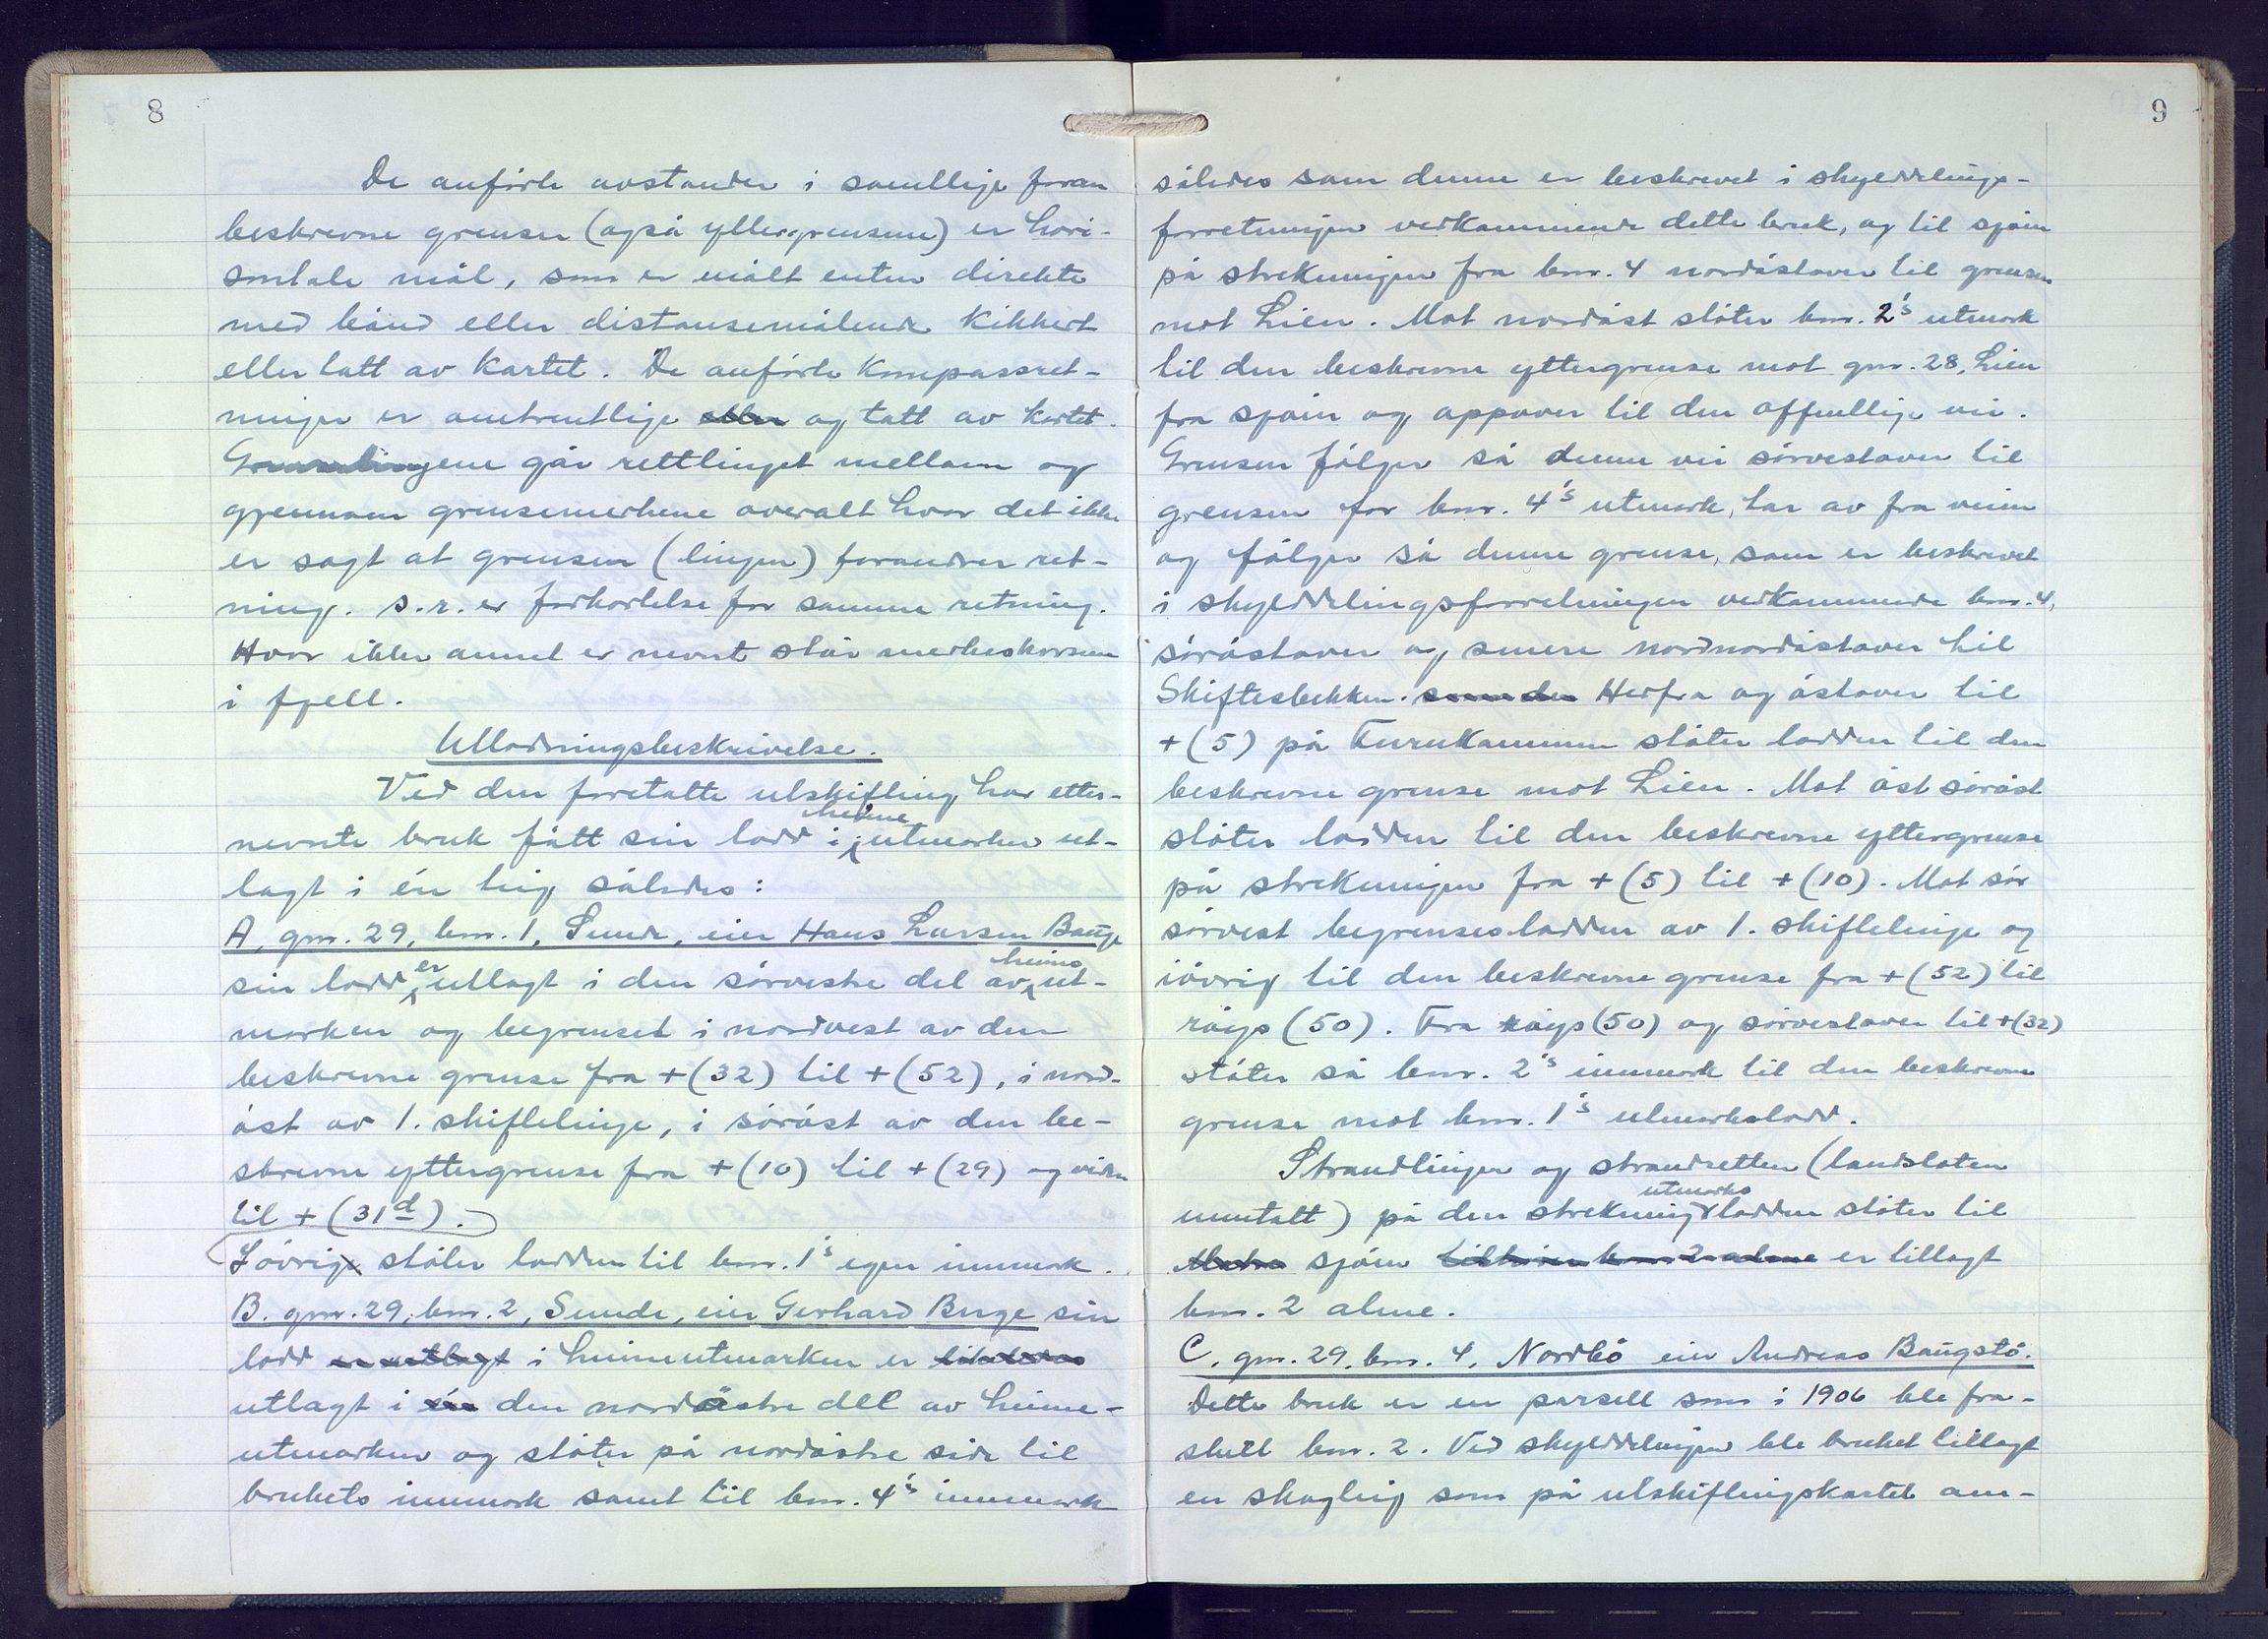 8
De anförte avstander i samtlige foran
beskrevne grenser (også yttergrensene) er hori-
sontale mål, som er målt enten direkte
med bånd eller distansemålende kikkert
eller tatt av kartet. De anförte kompassret-
ninger er omtrentlige eller og tatt av kartet.
Grenselinjene går rettlinjet mellom og
gjennom grensemerkene overalt hvor det ikke
er sagt at grensen (linjen) forandrer ret-
ning. s.r. er forkortelse for samme retning.
Hvor ikke annet er nevnt står merkeskorsene
i fjell.
Utlodningsbeskrivelse.
Ved den foretatte utskifting har etter-
nevnte bruk fått sin lodd i heimeutmarken ut-
lagt i én teig således:
A, gnr. 29, bnr. 1, Sunde, eier Hans Larsen Bauge
sin lodd er utlagt i den sörvestre del av heimeut-
marken og begrenset i nordvest av den
beskrevne grense fra +(32) til +(52), i nord-
öst av 1. skiftelinje, i söröst av den be-
skrevne yttergrense fra +(10) til +(29) og videre
til + (31d).
Iövrig stöter lodden til bnr. 1's egen innmark.
B. gnr. 29, bnr. 2, Sunde, eier Gerhard Berge sin
lodd er utlagt i heimeutmarken er
utlagt i én den nordöstre del av heime-
utmarken og stöter på nordöstre side til
brukets innmark samt til bnr. 4's innmark
9
således som denne er beskrevet i skylddelings-
forretningen vedkommende dette bruk, og til sjöen
på strekningen fra bnr. 4 nordöstover til grensen
mot Lien. Mot nordöst stöter bnr. 2's utmark
til den beskrevne yttergrense mot gnr. 28, Lien
fra sjöen og oppover til den offentlige vei.
Grensen fölger så denne vei sörvestover til
grensen for bnr. 4's utmark, tar av fra veien
og fölger så denne grense, som er beskrevet
i skylddelingsforretningen vedkommende bnr. 4,
söröstover og senere nordnordöstover til
Skiftesbekken. Herfra og östover til
+ (5) på Furukammen stöter lodden til den
beskrevne grense mot Lien. Mot öst söröst
stöter lodden til den beskrevne yttergrense
på strekningen fra + (5) til + (10). Mot sör
sörvest begrenses lodden av 1. skiftelinje og
iövrig til den beskrevne grense fra + (52) til
röys (50). Fra röys (50) og sörvestover til +(32)
stöter så bnr. 2's innmark til den beskrevne
grense mot bnr. 1's utmarkslodd.
Strandlinjen og strandretten (landslotten
unntatt) på den strekning utmarkslodden stöter til
sjöen er tillagt
bnr. 2 alene.
C, gnr. 29, bnr. 4, Nordbö eier Andreas Baugstö.
Dette bruk er en parsell som i 1906 ble fra-
skilt bnr. 2. Ved skylddelingen ble bruket tillagt
en skogteig som på utskiftingskartet om-